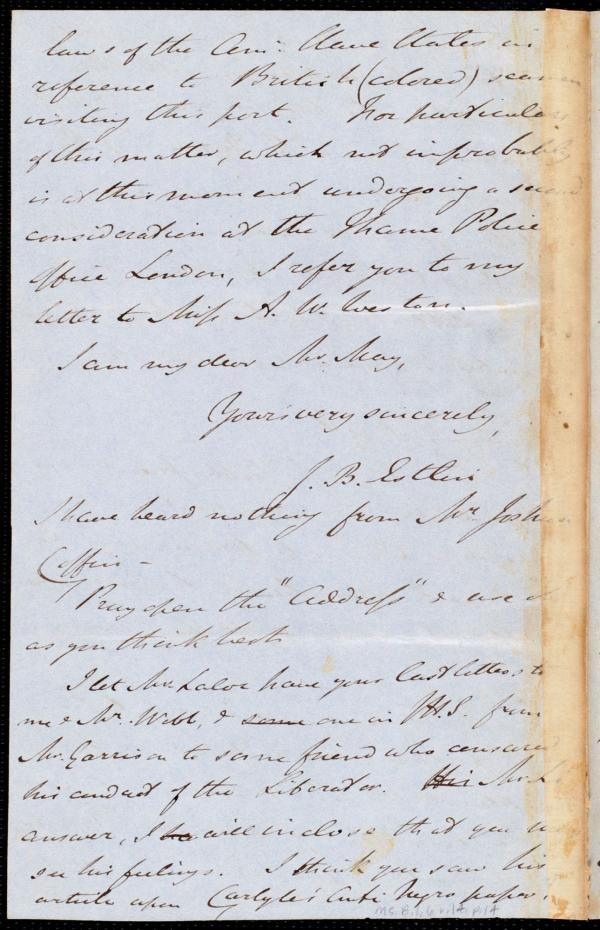 laws of the Am: Slave States in
reference to British (colored) seamen
visiting this port. For particulars
of this matter, which not improbably
is at this moment undergoing a second
consideration at the Thame Police
Office London, I refer you to my
letter to Miss A. W. Weston.
I am my dear Mr. May,
Yours very sincerely,
J. B. Estlin
I have heard nothing from Mr Joshua
Coffin –
Pray open the "Address" & use it
as you think best
I let Mr. have your last letters to
me & Mr. Webb, & some one in from
Mr. Garrison to some friend who censured
his conduct of the Liberator. His Mr.
answer, I will inclose that you may
see his feelings. I think you saw his
article upon Carlyle's Anti Negro paper.